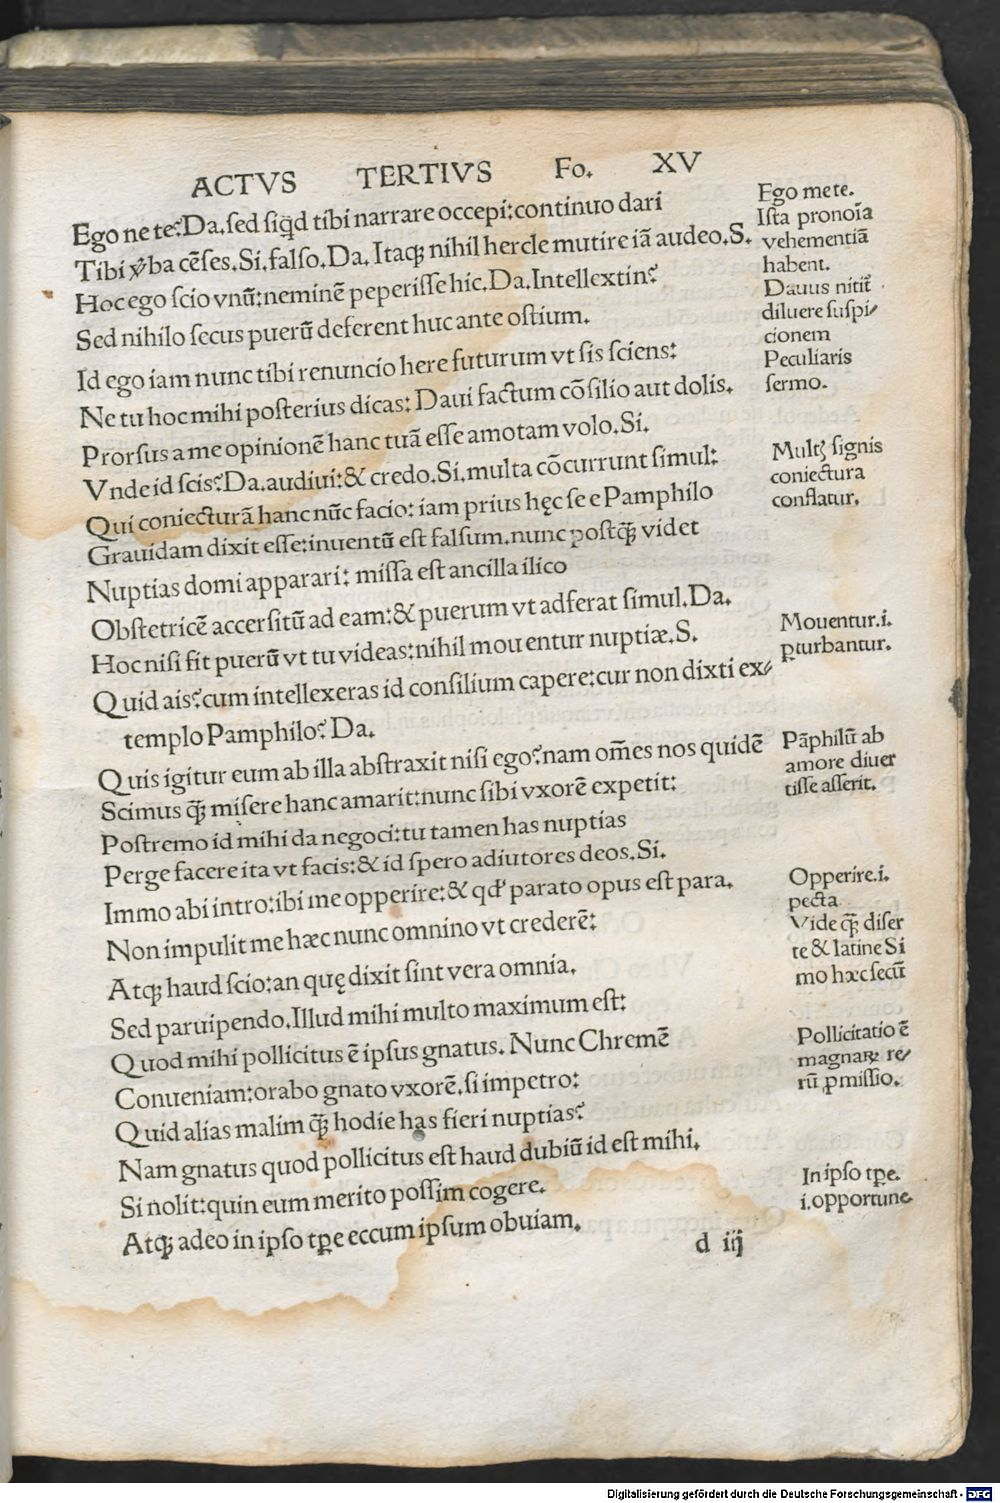 ACTVS TERTIVS Fo. XV
Ego ne te? Da. sed siqd tibi narrare occepi: continuo dari
Tibi ꝟba cēses. Si. falso. Da. Itaqꝫ nihil hercle mutire iā audeo. S.
Hoc ego scio vnū: neminē peperisse hic. Da. Intellextin?
Sed nihilo secus puerū deferent huc ante ostium.
Id ego iam nunc tibi renuncio here futurum vt sis sciens:
Ne tu hoc mihi posterius dicas: Daui factum cōsilio aut dolis.
Prorsus a me opinionē hanc tuā esse amotam volo. Si.
Vnde id scis? Da. audiui: & credo. Si. multa cōcurrunt simul:
Qui coniecturā hanc nūc facio: iam prius hęc se e Pamphilo
Grauidam dixit esse: inuentū est falsum. nunc postq̄ꝫ videt
Nuptias domi apparari: missa est ancilla ilico
Obstetricē accersitū ad eam: & puerum vt adferat simul. Da.
Hoc nisi fit puerū vt tu videas: nihil mouentur nuptiæ. S.
Quid ais? cum intellexeras id consilium capere: cur non dixti ex⸗
templo Pamphilo? Da.
Quis igitur eum ab illa abstraxit nisi ego? nam om̄es nos quidē
Scimus q̄ꝫ misere hanc amarit: nunc sibi vxorē expetit:
Postremo id mihi da negoci: tu tamen has nuptias
Perge facere ita vt facis: & id spero adiutores deos. Si.
Immo abi intro: ibi me opperire: & qd' parato opus est para.
Non impulit me hæc nunc omnino vt crederē:
Atqꝫ haud scio: an quę dixit sint vera omnia.
Sed paruipendo. Illud mihi multo maximum est:
Quod mihi pollicitus ē ipsus gnatus. Nunc Chremē
Conueniam: orabo gnato vxorē. si impetro:
Quid alias malim q̄ꝫ hodie has fieri nuptias?
Nam gnatus quod pollicitus est haud dubiū id est mihi.
Si nolit: quin eum merito possim cogere.
Atqꝫ adeo in ipso tꝑe eccum ipsum obuiam.
d iij
Ego me te.
Ista pronoīa
vehementiā
habent.
Dauus nitit̄
diluere suspi⸗
cionem
Peculiaris
sermo.
Multꝭ signis
coniectura
conflatur.
Mouentur. i.
ꝑturbantur.
Pāphilū ab
amore diuer
tisse asserit.
Opperire. i.
pecta
Vide q̄ꝫ diser
te & latine Si
mo hæc secū
Pollicitatio ē
magnaꝝ re⸗
rū ꝓmissio.
In ipso tꝑe.
i. opportune
Digitalisierung gefördert durch die Deutsche Forschungsgemeinschaft - DFG